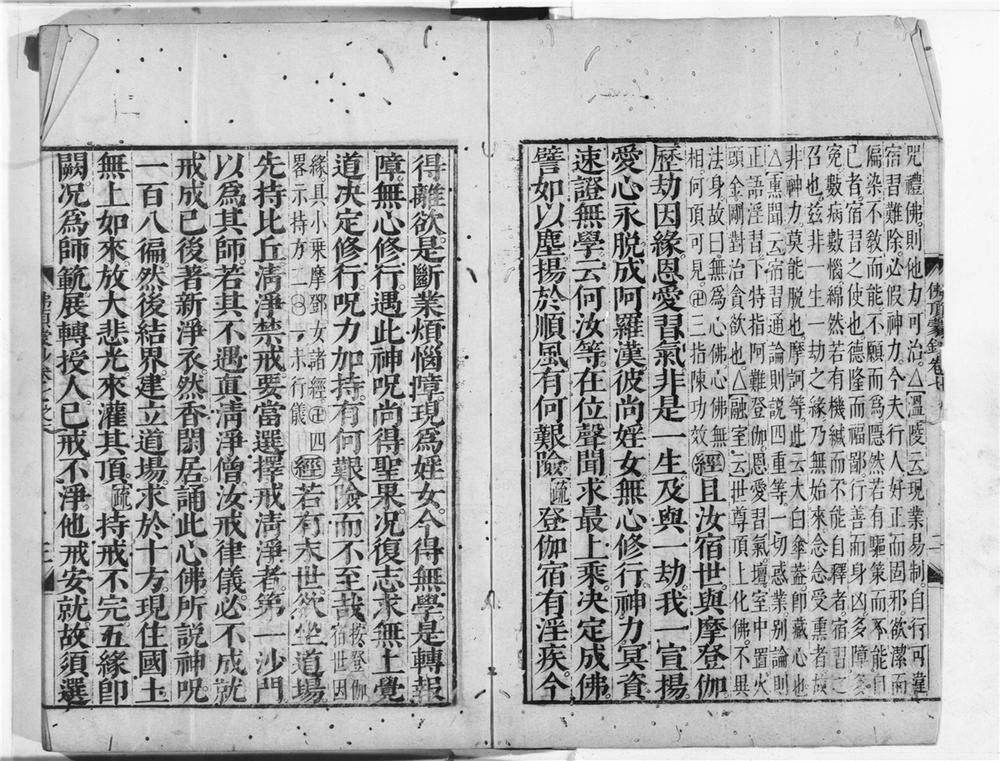 咒禮佛。則他力可治。△溫陵云。現業易制。自行可違
宿習難除。必假神力。今夫行人。好正而固邪。欲潔而
偏染。不教而能。不願而爲。隱然若有驅策而不能自
已者。宿習之使也。德隆而福鄙。行善而身凶。多障多
冤。數病數惱。綿然若有機緘而不能自釋者。宿習之
召也。茲非一生一劫之緣。乃無始來念念受熏者。故
非神力莫能脫也。摩訶等。此云大白傘蓋。卽藏心也
△熏聞云。宿習通論。則說四重等一切惑業。別論則
正語淫習。下特指阿難登伽恩愛習氣。壇室中置火
頭金剛。對治貪欲也。△融室云。世尊頂上化佛。不異
法身。故曰無爲心佛。心佛無
相。何頂可見。卍三指陳功效
經且汝宿世與摩登伽
歷劫因緣。恩愛習氣。非是一生及與一劫。我一宣揚。
愛心永脫。成阿羅漢。彼尚婬女。無心修行。神力冥資
速證無學。云何汝等。在位聲聞。求最上乘。決定成佛
譬如以塵揚於順風。有何艱險 疏 登伽宿有淫疾。今
佛頂蒙鈔卷七
得離欲。是斷業煩惱障。現爲婬女。今得無學。是轉報
障。無心修行。遇此神呪。尚得聖果。况復志求無上覺
道。決定修行。呪力加持。有何艱險而不至哉
按登伽
宿世因
緣。具小乘摩鄧女諸經。卍四
畧示持方二○一未行儀
經若有末世欲坐道場
先持比丘清淨禁戒。要當選擇戒清淨者。第一沙門
以爲其師。若其不遇眞清淨僧。汝戒律儀必不成就
戒成已後。著新淨衣。然香閒居。誦此心佛所說神呪。
一百八徧。然後結界。建立道場。求於十方現住國土
無上如來。放大悲光。來灌其頂。疏 持戒不完。五緣卽
闕。况爲師範。展轉授人。已戒不淨。他戒安就。故須選
佛頂蒙鈔卷七之
三